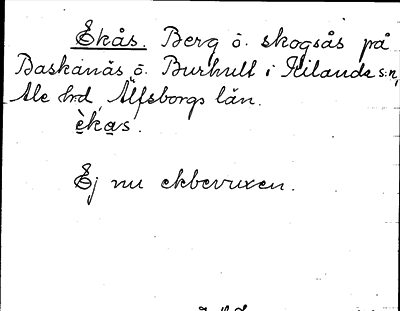 Ekås. Berg o. skogsås på
Baskanås o. Burhult i Kilanda s:n,
Ale hrd, Älfsborgs län.
èkas.
Ej nu ekbevuxen.